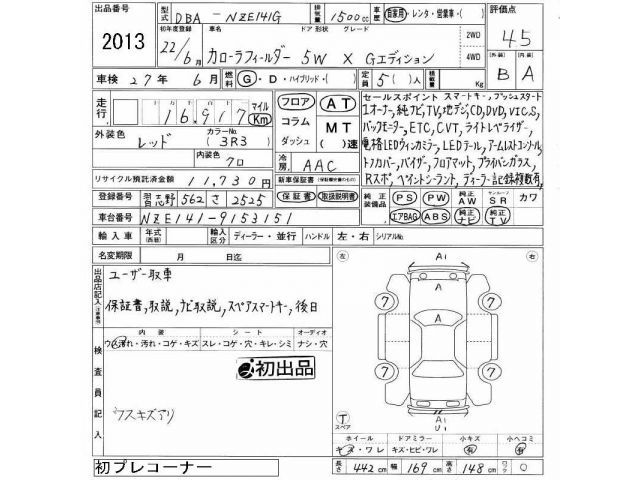 出品番号 2013
型式 DBA - NZE141G 排気量 1500cc 車歴 自家用・レンタ・営業車・( ) 評価点 4.5
初年度登録 22/6月 車名 カローラフィールダー ドア 形状 5W グレード X Gエディション 2WD 4WD 外装 B 内装 A
車検 27年 6月 燃料 G・D・ハイブリッド・( ) 定員 5( )人 積載量 Kg
走行 十万 万 千 百 十 一 16,917 マイル Km
フロア コラム ダッシュ AT MT ( )速
外装色 レッド カラーNo. (3R3)
内装色 クロ
冷房 AAC
セールスポイント スマートキー、プッシュスタート
1オーナー、純ナビ、TV、地デジ、CD、DVD、VICS、
バックモニター、ETC、CVT、ライトレベライザー、
電格LEDウィンカミラー、LEDテール、アームレストコンソール
トノカバー、バイザー、フロアマット、プライバシーガラス、
Rスポ、ペイントシーラント、ディーラー記録複数有
リサイクル預託済金額 11,730円
新車保証書 保証書 取扱説明書
登録番号 習志野 562 さ 2525
純正装備品 PS PW 純正AW サンルーフSR カワ
エアBAG ABS 純正ナビ 純正TV
車台番号 NZE141-9153151
輸入車 年式(西暦) 輸入区分 ディーラー・並行 ハンドル 左・右 シリアルNo.
名変期限 月 日迄
出品店記入(注意事項)
ユーザー取車
保証書,取説,ナビ取説,スペアスマートキー,後日
検査員記入
内装 シート オーディオ
ウス汚れ・汚れ・コゲ・キズ スレ・コゲ・穴・キレ・シミ ナシ・穴
初出品
ウスキズアリ
左 右
A1
A
A
7 7
7 7
A1
U1
T スペア
ホイール ドアミラー 小キズ 小ヘコミ
キズ・ワレ キズ・ヒビ・ワレ 有 有
初プレコーナー
長さ 442 cm 幅 169 cm 高さ 148 cm ワック 0